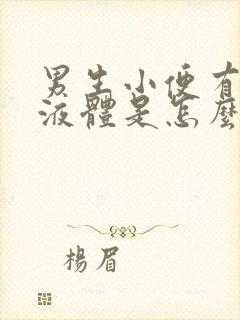 男生小便有
液體是怎麼
楊眉